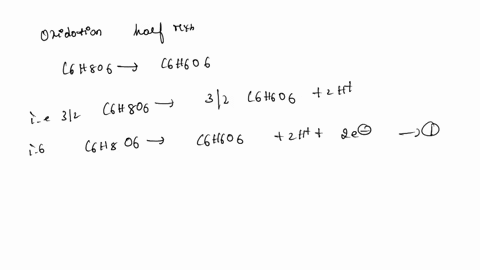 Oxidation half rxn
C6H8O6 → C6H6O6
i.e 3/2 C6H8O6 → 3/2 C6H6O6 + 2H+
i.e C6H8O6 → C6H6O6 + 2H+ + 2e⊖ → ①